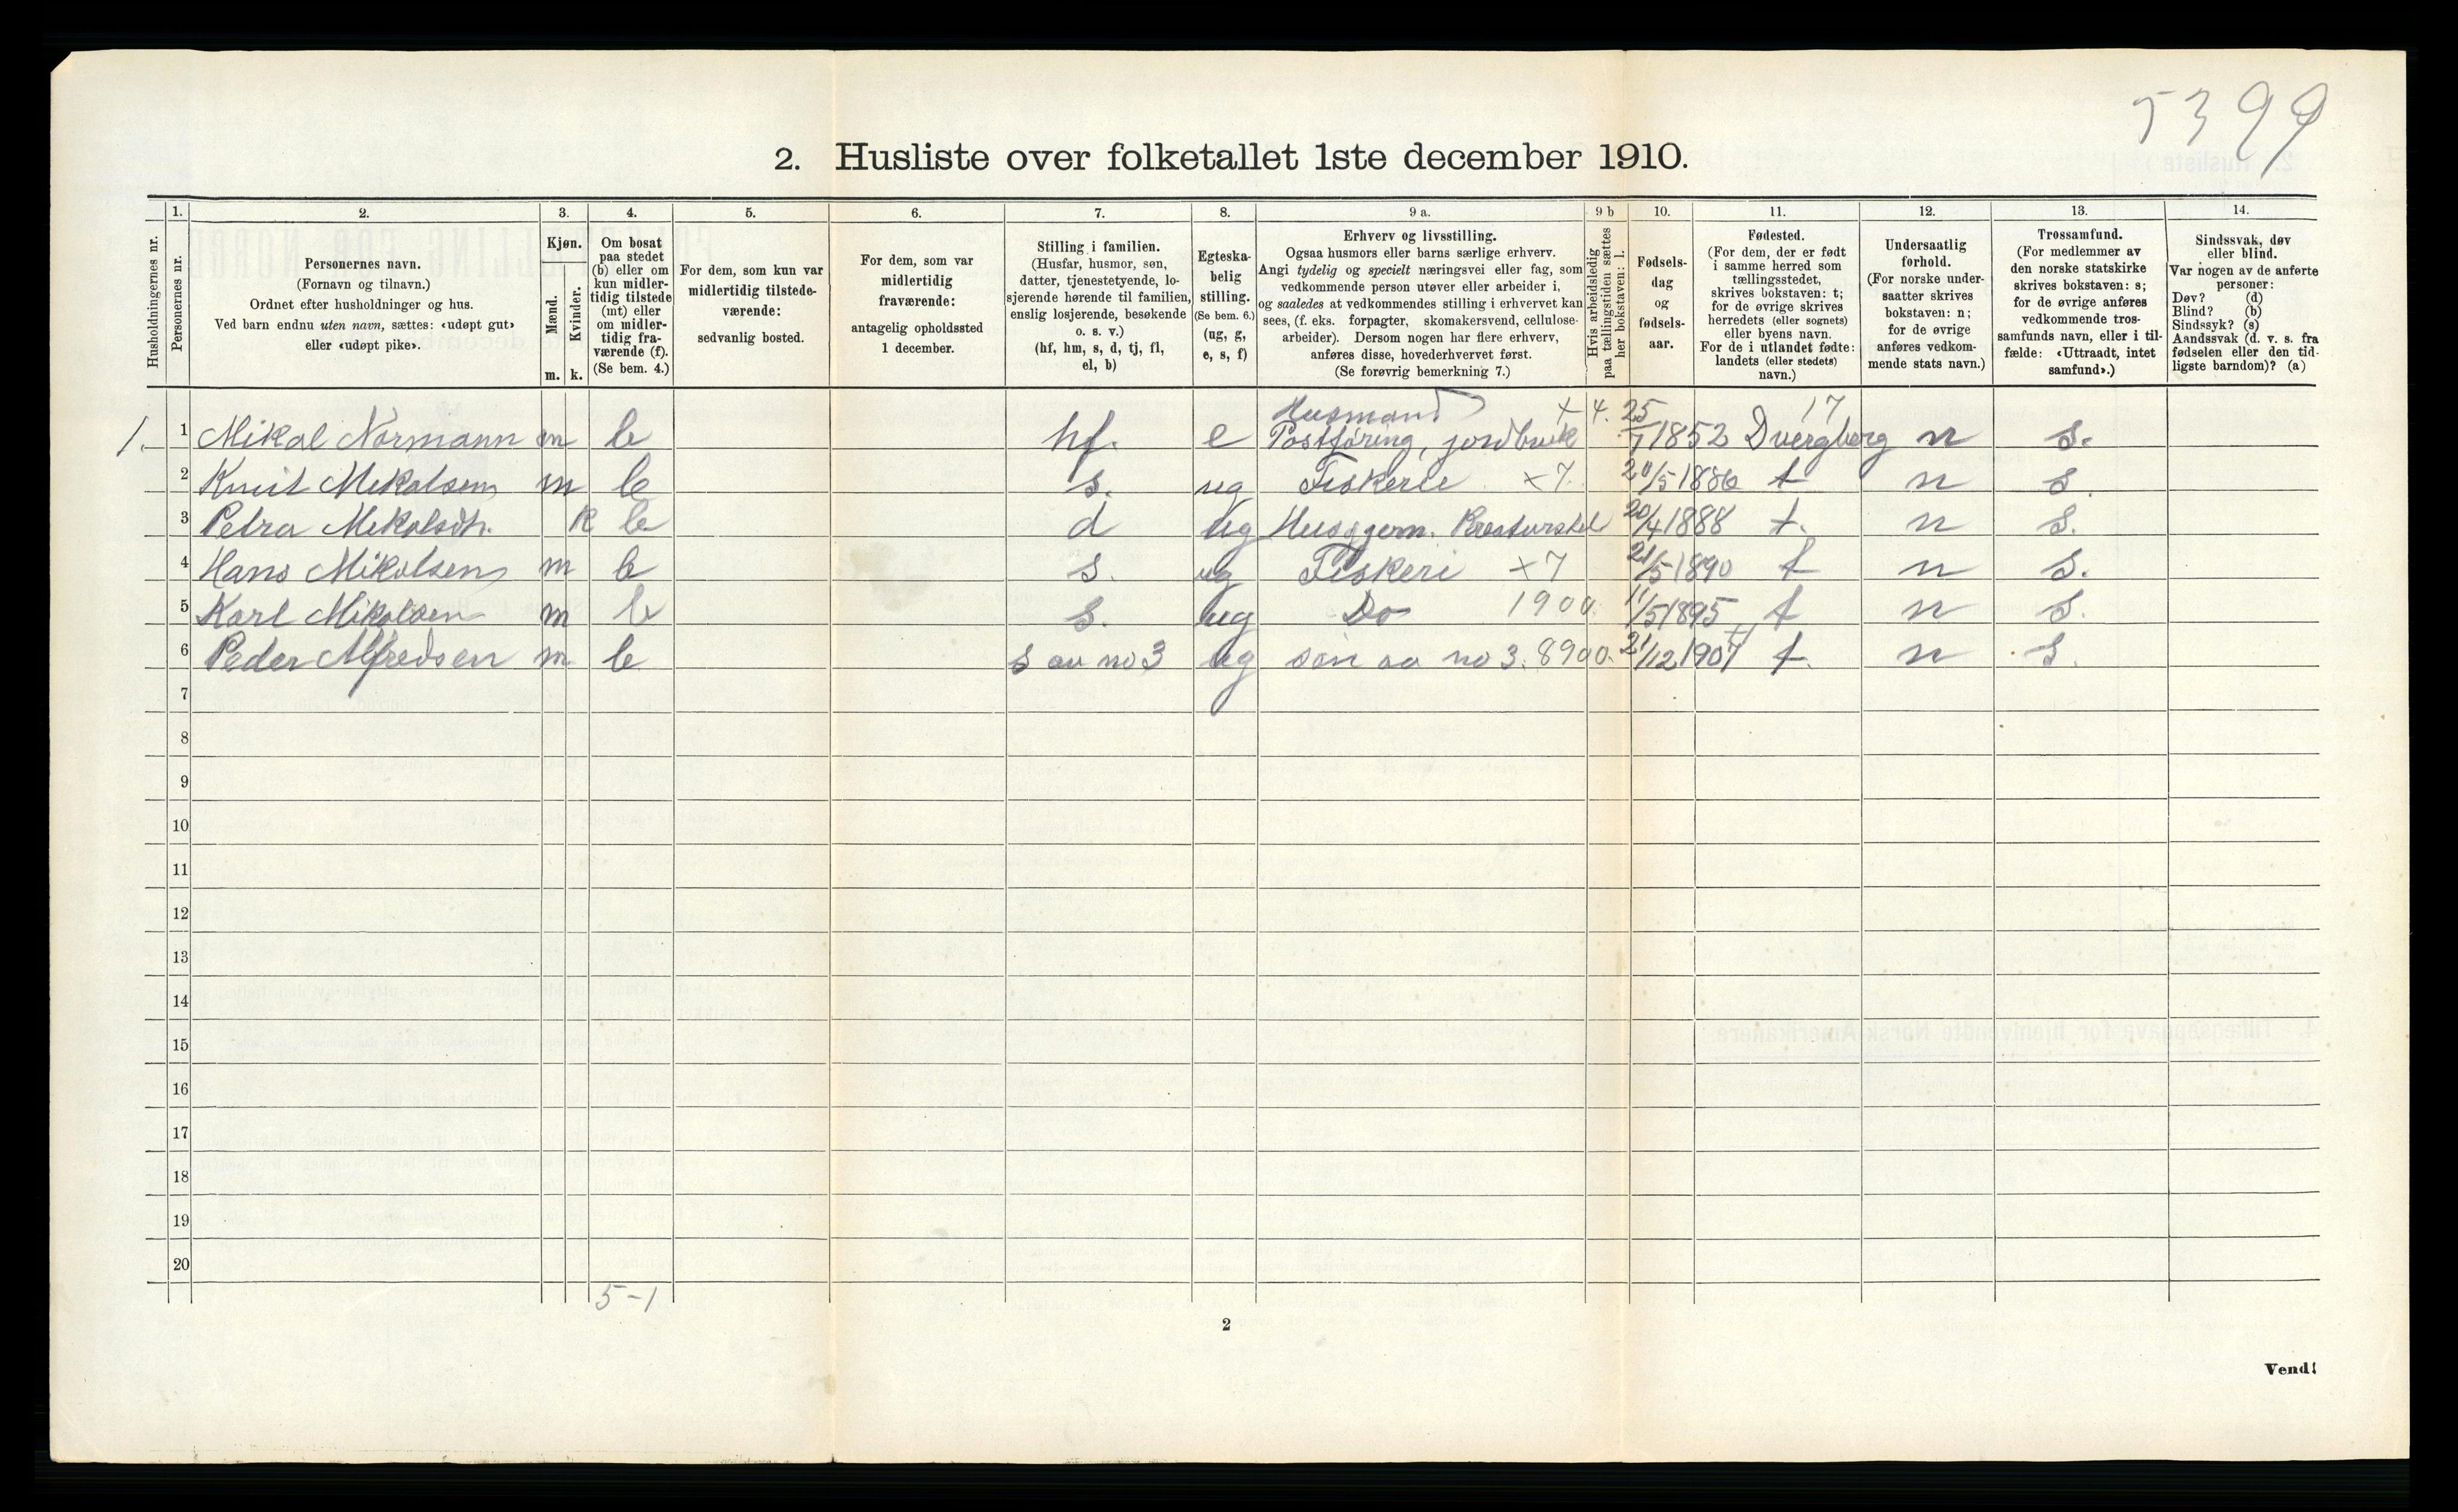 5399
2. Husliste over folketallet 1ste december 1910.
Husholdningernes nr.
1.
Personernes nr.
2.
Personernes navn.
(Fornavn og tilnavn.)
Ordnet efter husholdninger og hus.
Ved barn endnu uten navn, sættes: «udøpt gut»
eller «udøpt pike».
3.
Kjøn.
Mænd.
Kvinder.
m. k.
4.
Om bosat
paa stedet
(b) eller om
kun midler-
tidig tilstede
(mt) eller
om midler-
tidig fra-
værende (f).
(Se bem. 4.)
5.
For dem, som kun var
midlertidig tilstede-
værende:
sedvanlig bosted.
6.
For dem, som var
midlertidig
fraværende:
antagelig opholdssted
1 december.
7.
Stilling i familien.
(Husfar, husmor, søn,
datter, tjenestetyende, lo-
sjerende hørende til familien,
enslig losjerende, besøkende
o. s. v.)
(hf, hm, s, d, tj, fl,
el, b)
8.
Egteska-
belig
stilling.
(Se bem. 6.)
(ug, g,
e, s, f)
9 a.
Erhverv og livsstilling.
Ogsaa husmors eller barns særlige erhverv.
Angi tydelig og specielt næringsvei eller fag, som
vedkommende person utøver eller arbeider i,
og saaledes at vedkommendes stilling i erhvervet kan
sees, (f. eks. forpagter, skomakersvend, cellulose-
arbeider). Dersom nogen har flere erhverv,
anføres disse, hovederhvervet først.
(Se forøvrig bemerkning 7.)
9 b
Hvis arbeidsledig
paa tællingstiden sættes
her bokstaven: l.
10.
Fødsels-
dag
og
fødsels-
aar.
11.
Fødested.
(For dem, der er født
i samme herred som
tællingsstedet,
skrives bokstaven: t;
for de øvrige skrives
herredets (eller sognets)
eller byens navn.
For de i utlandet fødte:
landets (eller stedets)
navn.)
12.
Undersaatlig
forhold.
(For norske under-
saatter skrives
bokstaven: n;
for de øvrige
anføres vedkom-
mende stats navn.)
13.
Trossamfund.
(For medlemmer av
den norske statskirke
skrives bokstaven: s;
for de øvrige anføres
vedkommende tros-
samfunds navn, eller i til-
fælde: «Uttraadt, intet
samfund».)
14.
Sindssvak, døv
eller blind.
Var nogen av de anførte
personer:
Døv? (d)
Blind? (b)
Sindssyk? (s)
Aandssvak (d. v. s. fra
fødselen eller den tid-
ligste barndom)? (a)
Husmand + 4. 17
1. 1 Mikal Normann m b hf. e Postføring, jordbruk 25/7 1852 Dvergberg n s.
2 Knut Mikalsen m b s. ug Fiskeri x 7. 20/5 1886 t n s.
3 Petra Mikalsdtr. k b d ug Husgjern. Kreaturstel 20/4 1888 t. n s.
4 Hans Mikalsen m b s. ug Fiskeri x 7 21/5 1890 t n s.
5 Karl Mikalsen m b s. ug Do 1900. 11/5 1895 t n s.
6 Peder Alfredsen m b s av no 3 ug søn av no 3. 8900. 21/12 1907 t. n s.
7
8
9
10
11
12
13
14
15
16
17
18
19
20
5-1
2
Vend!